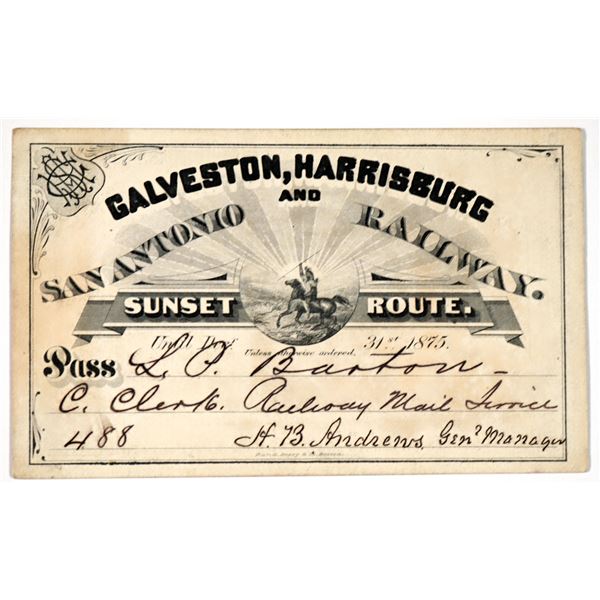 GALVESTON, HARRISBURG
AND
SAN ANTONIO RAILWAY.
SUNSET ROUTE.
Until Dec 31st 1875.
Unless otherwise ordered.
Pass L. P. Barton
C. Clerk. Railway Mail Service
488 H. B. Andrews, Genl Manager